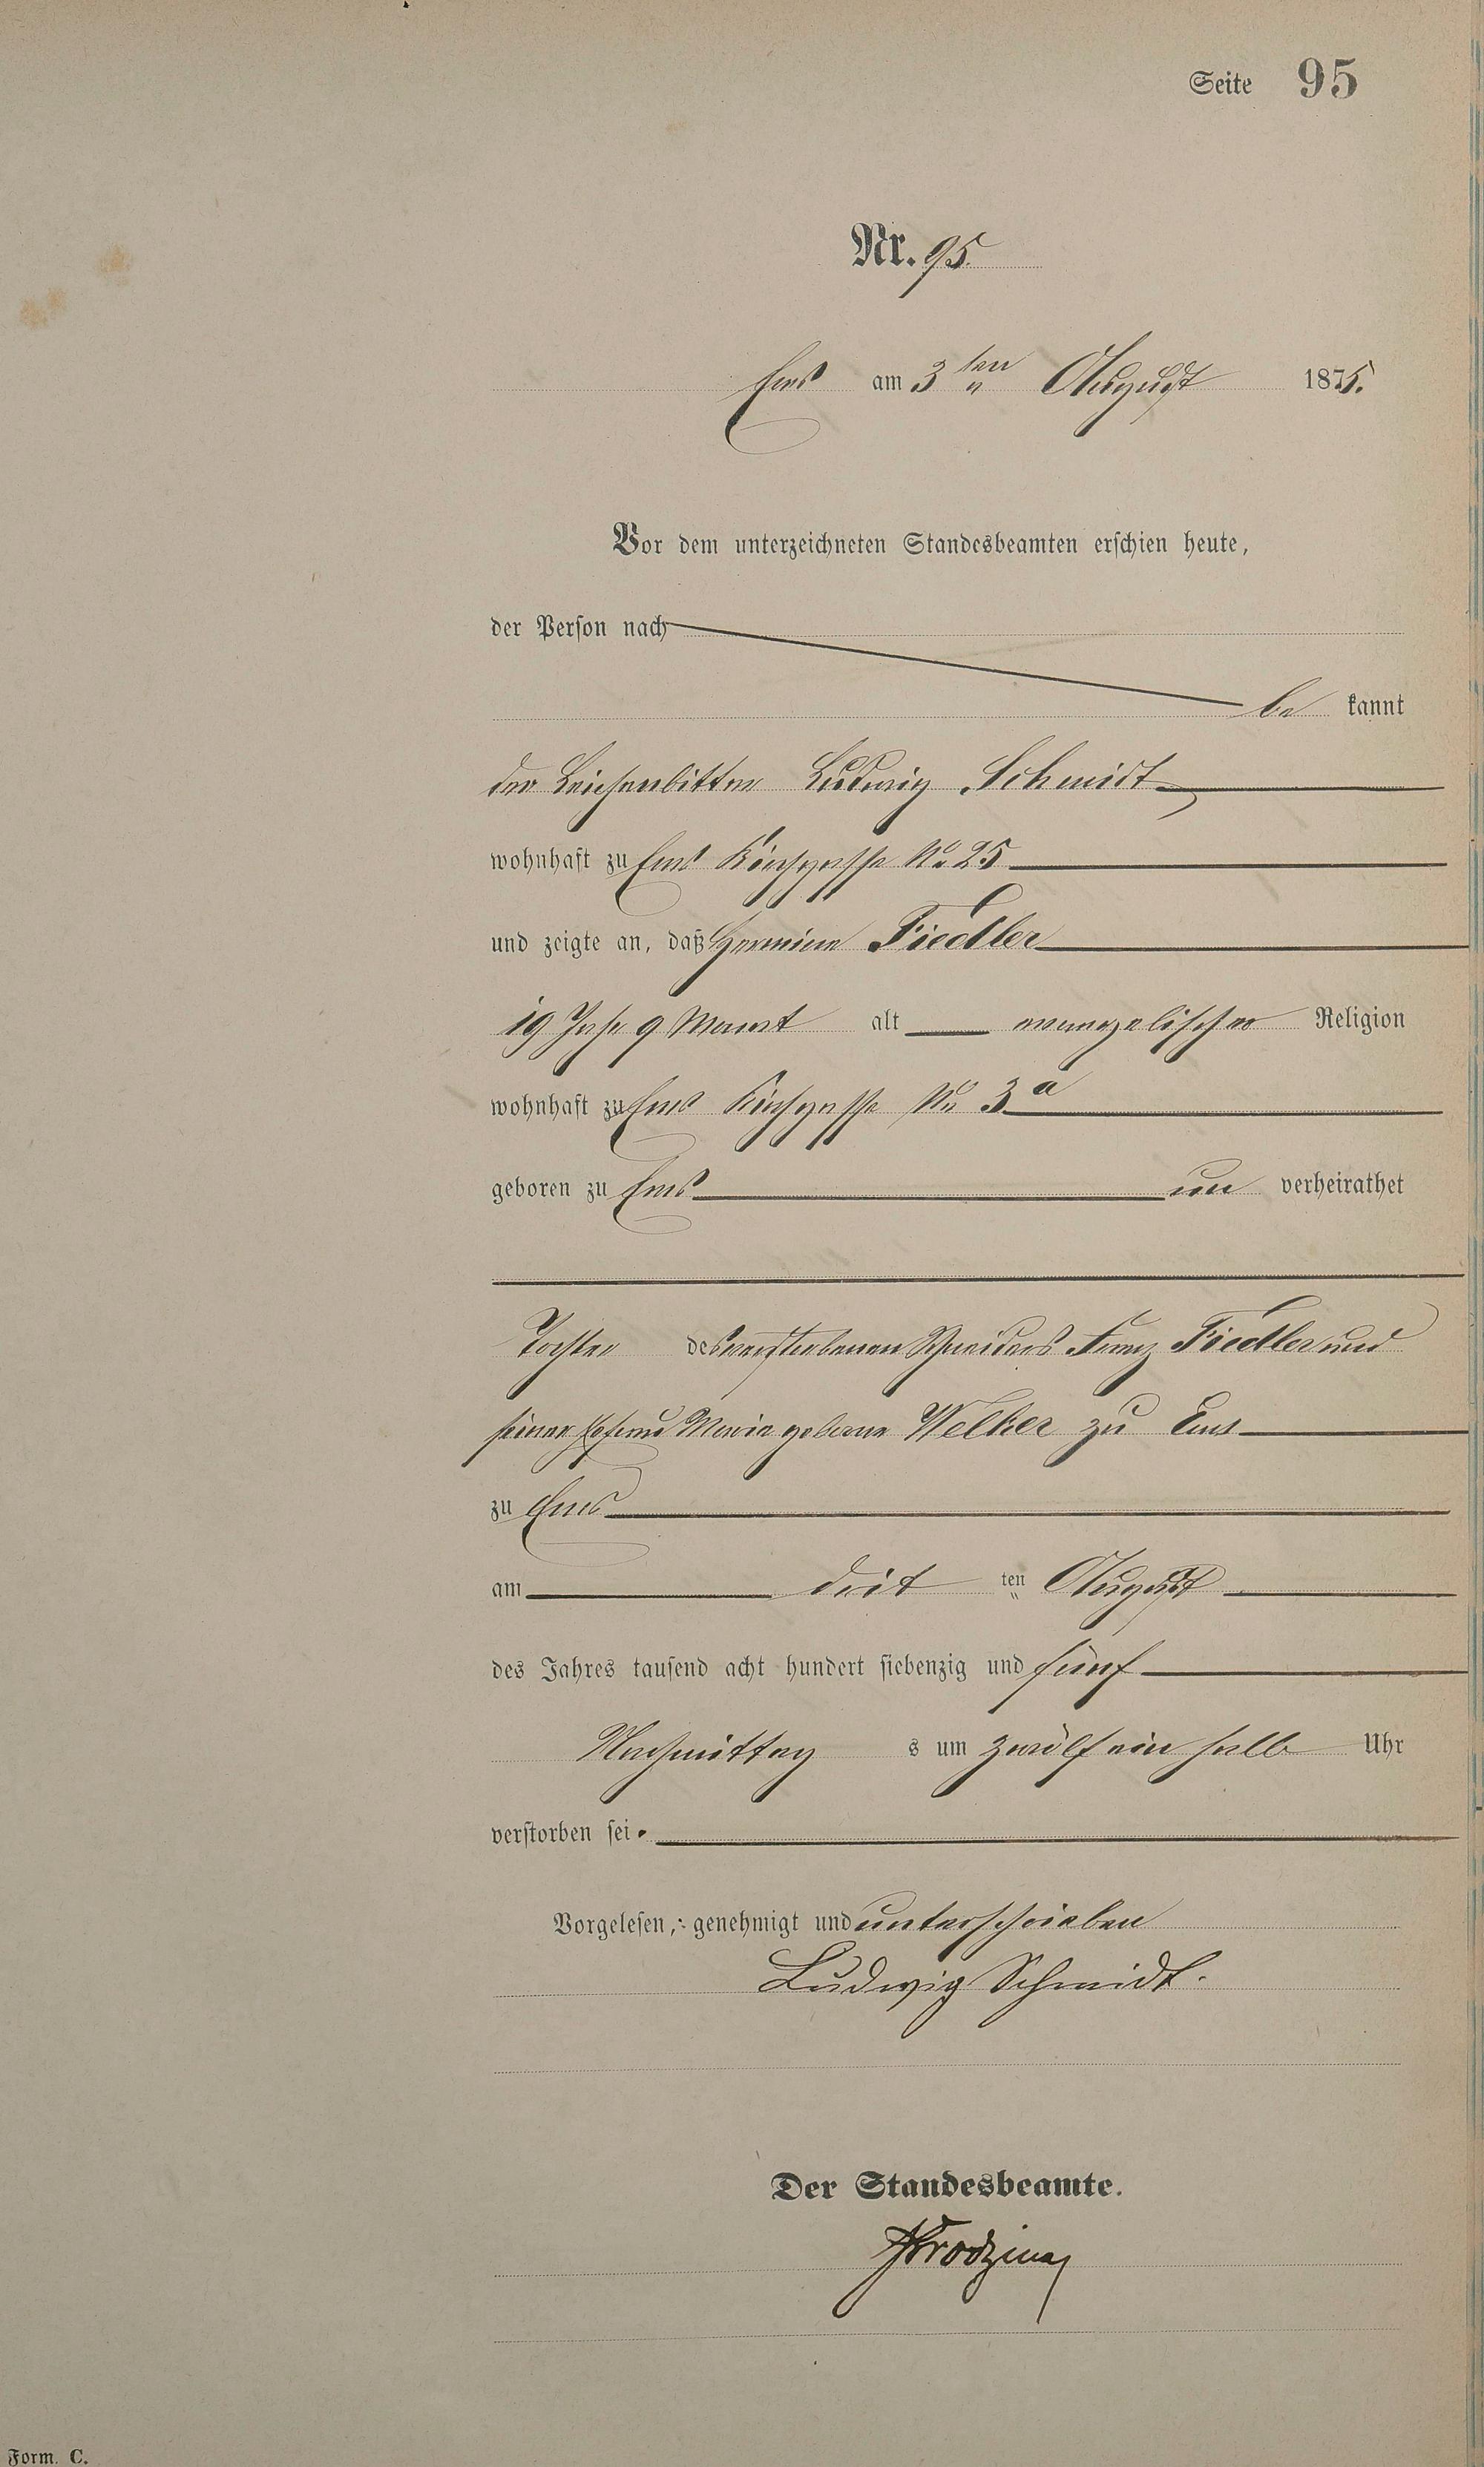 Seite 95
Nr. 95
Ems am 3ten August 1875.
Vor dem unterzeichneten Standesbeamten erschien heute,
der Person nach
be kannt
der Leichenbitter Ludwig Schmidt
wohnhaft zu Ems No 25
und zeigte an, daß Hermine Fiedler
19 Jahr 9 Monat alt evangelischer Religion
wohnhaft zu Ems Kirchgasse No 3a
geboren zu Ems un verheirathet
Tochter des verstorbenen Schneiders Franz Fiedler und
seiner Ehefrau Maria geborne Welker zu Ems
zu Ems
am dritten August
des Jahres tausend acht hundert siebenzig und fünf
Nachmittag s um zwölf ein halb Uhr
verstorben sei.
Vorgelesen, genehmigt und unterschrieben
Ludwig Schmidt.
Der Standesbeamte.
Form. C.